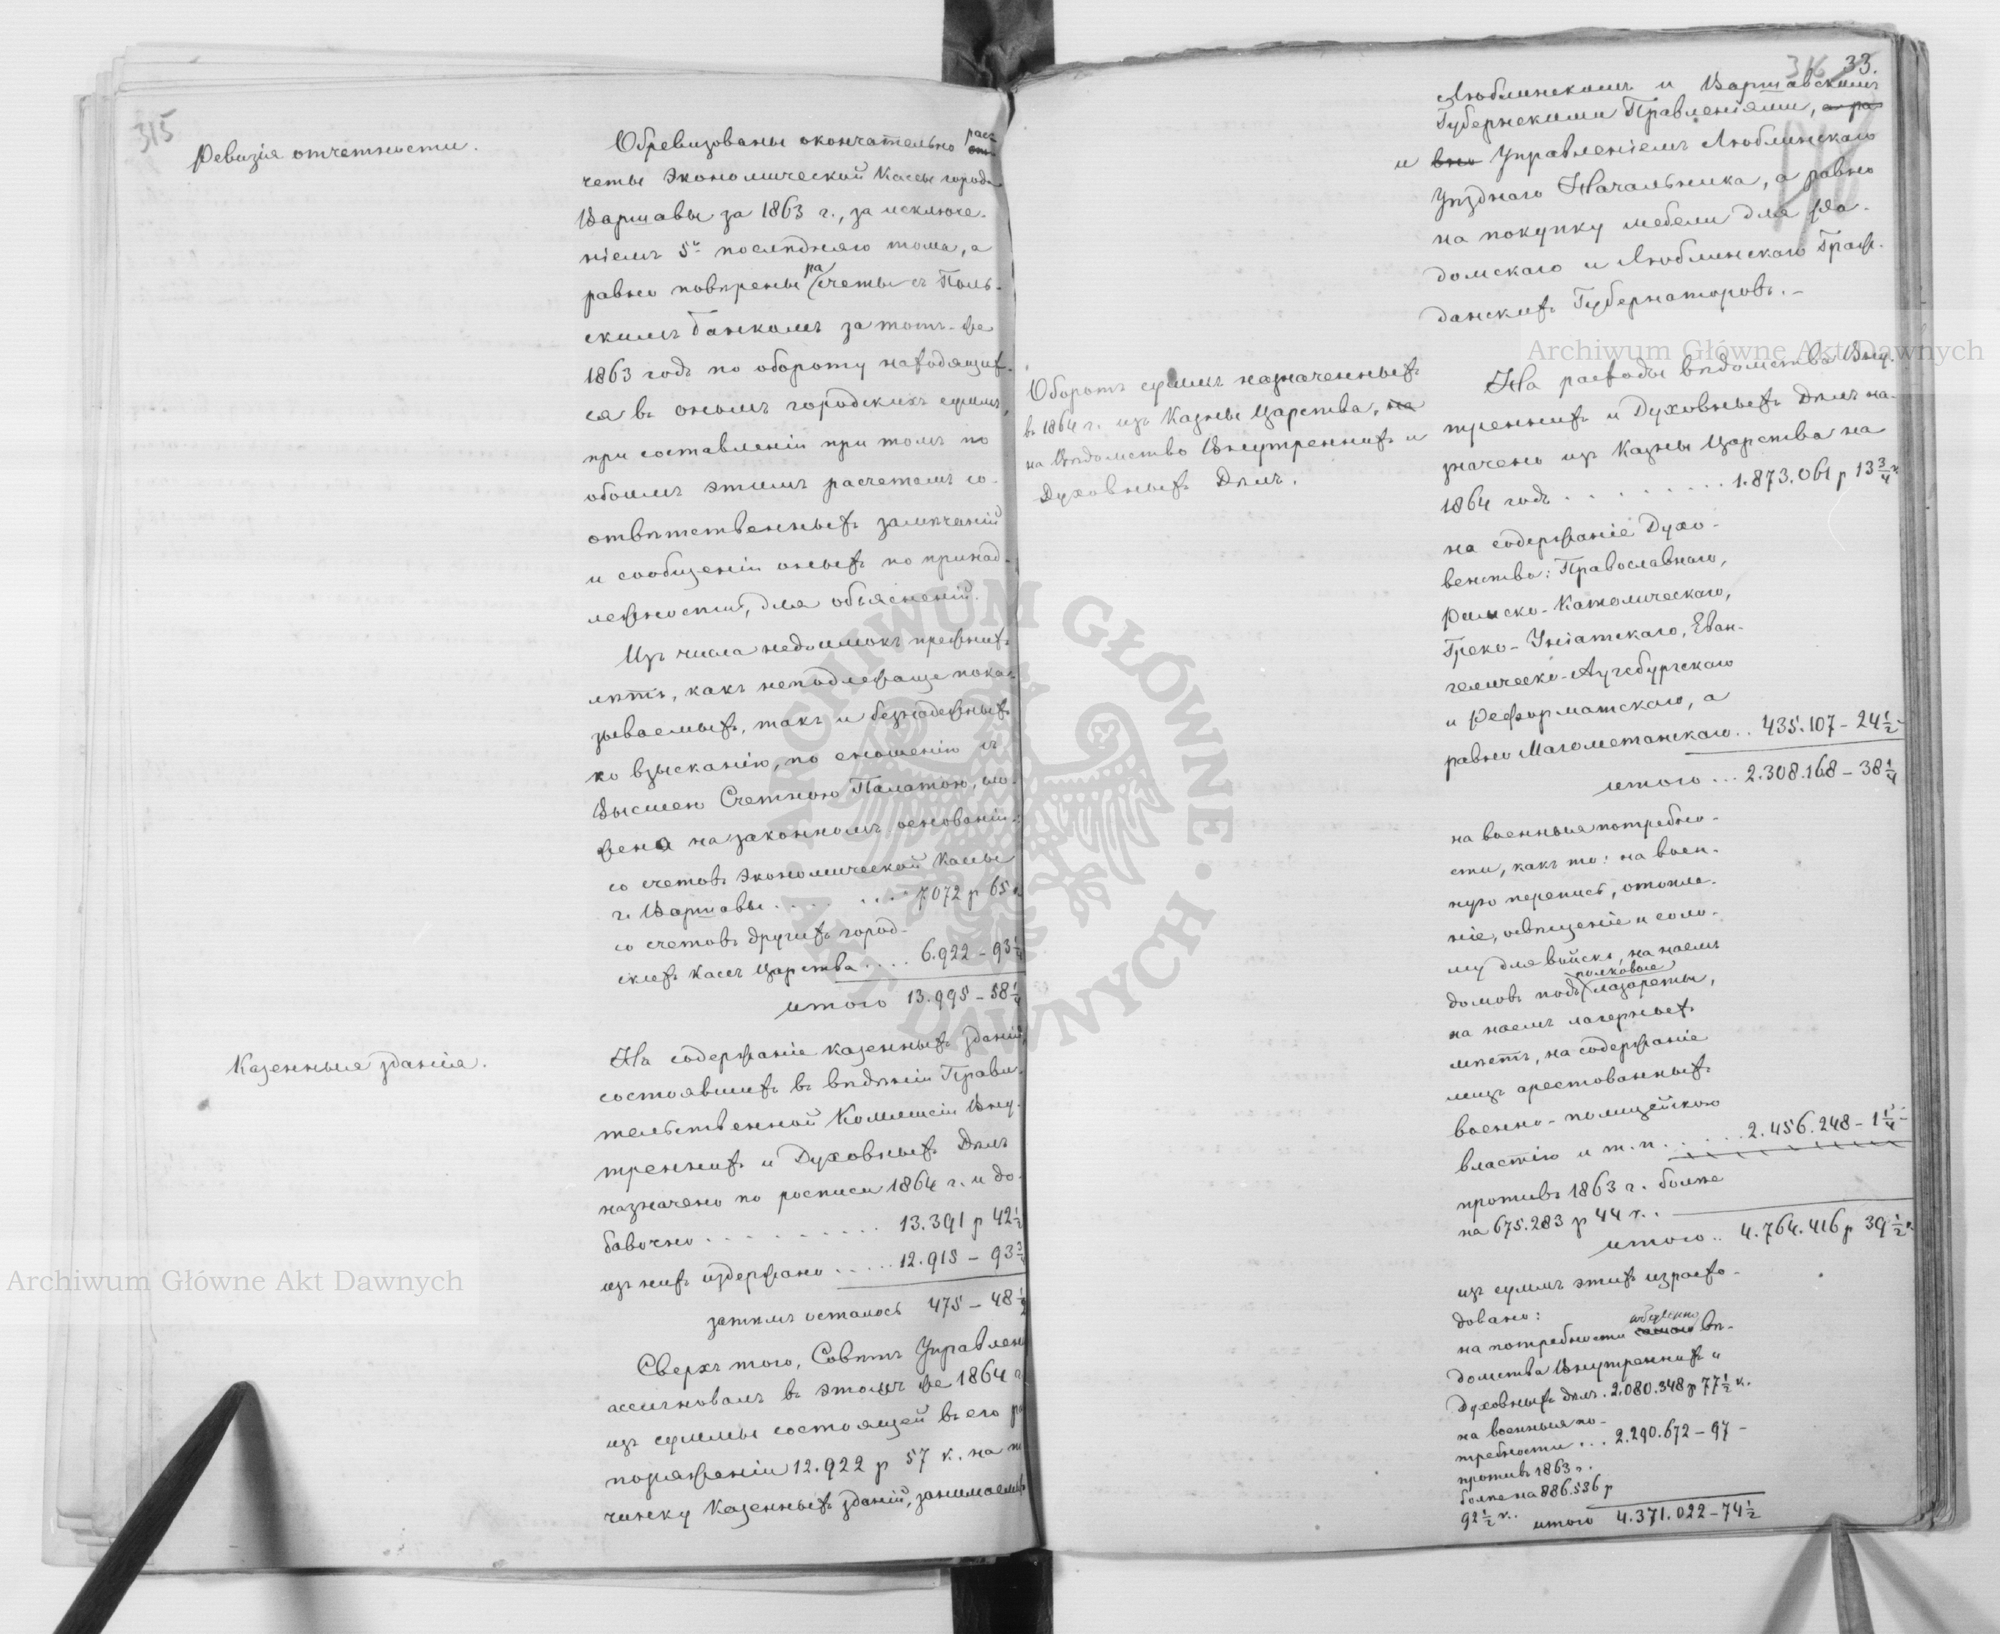 315
Ревизія отчетности.
Обревизованы окончательно рас-
четы Экономической Кассы города
Варшавы за 1863 г., за исключе-
ніемъ 5го послѣдняго тома, а
равно повѣрены расчеты съ Поль-
скимъ Банкомъ за тотъ-же
1863 годъ по обороту находящих-
ся въ ономъ городскихъ суммъ,
при составленіи при томъ по
обоимъ этимъ расчетамъ со-
отвѣтственныхъ замѣчаній
и сообщеніи оныхъ по принад-
лежности, для объясненій.
Изъ числа недоимокъ прежнихъ
лѣтъ, какъ неподлежаще пока-
зываемыхъ, такъ и безнадежныхъ
ко взысканію, по сношенію съ
Высшею Счетною Палатою, сло-
жено на законномъ основаніи:
со счетовъ Экономической Кассы
г. Варшавы . . . . . . . 7072 р 65 к
со счетовъ другихъ город-
скихъ кассъ Царства . . . . 6.922 – 93 1/4
итого 13.995 – 58 1/4
Казенныя зданія.
На содержаніе казенныхъ зданій,
состоявшихъ въ вѣдѣніи Прави-
тельственной Коммисіи Вну-
треннихъ и Духовныхъ Дѣлъ
назначено по росписи 1864 г. и до-
бавочно . . . . . . . . . 13.391 р 42 1/2
изъ нихъ издержано . . . . . 12.915 – 93 3/4
затѣмъ осталось 475 – 48 1/2
Сверхъ того, Совѣтъ Управлен
ассигновалъ въ этомъ же 1864 г
изъ суммы состоящей въ его ра
поряженіи 12.922 р 57 к. на по
чинку Казенныхъ зданій, занимаемыхъ
316 33.
Люблинскимъ и Варшавскимъ
Губернскими Правленіями, а ра
и вно Управленіемъ Люблинскаго
Уѣзднаго Начальника, а равно
на покупку мебели для Ра-
домскаго и Люблинскаго Граж-
данскихъ Губернаторовъ.–
Оборотъ суммъ назначенныхъ
въ 1864 г. изъ Казны Царства, на
на Вѣдомство Внутреннихъ и
Духовныхъ Дѣлъ.
На расходы вѣдомства Вну-
треннихъ и Духовныхъ Дѣлъ на-
значено изъ Казны Царства на
1864 годъ . . . . . . . . . 1.873.061 р 13 3/4 к
на содержаніе Духо-
венства: Православнаго,
Римско-Католическаго,
Греко-Уніатскаго, Еван-
гелическо-Аугсбургскаго
и Реформатскаго, а
равно Магометанскаго . . 435.107 – 24 1/2 –
итого . . . 2.308.168 – 38 1/4
на военныя потребно-
сти, какъ то: на воен-
ную перепись, отопле-
ніе, освѣщеніе и соло-
му для войскъ, на наемъ
домовъ подъ полковые лазареты,
на наемъ лагерныхъ
мѣстъ, на содержаніе
лицъ арестованныхъ
военно-полицейскою
властію и т. п. . . . . . 2.456.248 – 1 1/4 –
противъ 1863 г. болѣе
на 675.283 р 44 к. .
итого . . 4.764.416 р 39 1/2 к
изъ суммъ этихъ израсхо-
довано:
на потребности собственно самого вѣ-
домства Внутреннихъ и
Духовныхъ дѣлъ . 2.080.348 р 77 1/2 к.
на военныя по-
требности . . . 2.290.672 – 97 –
противъ 1863 г.
болѣе на 886.536 р
92 1/2 к. . итого 4.371.022 – 74 1/2
Archiwum Główne Akt Dawnych
Archiwum Główne Akt Dawnych
ARCHIWUM GŁÓWNE · AKT DAWNYCH ·